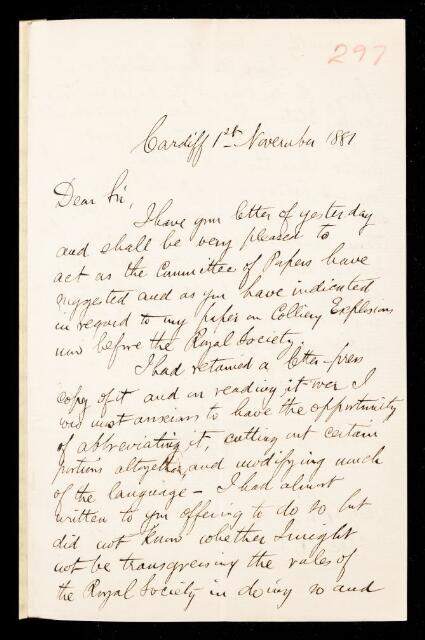 297
Cardiff 1st November 1881
Dear Sir,
I have your letter of yesterday
and shall be very pleased to
act as the Committee of Papers have
suggested and as you have indicated
in regard to my paper on Colliery Explosions
now before the Royal Society.
I had retained a letter-press
copy of it and on reading it over I
was most anxious to have the opportunity
of abbreviating it, cutting out certain
portions altogether, and modifying much
of the language – I had almost
written to you offering to do so but
did not know whether I might
not be transgressing the rules of
the Royal Society in doing so and